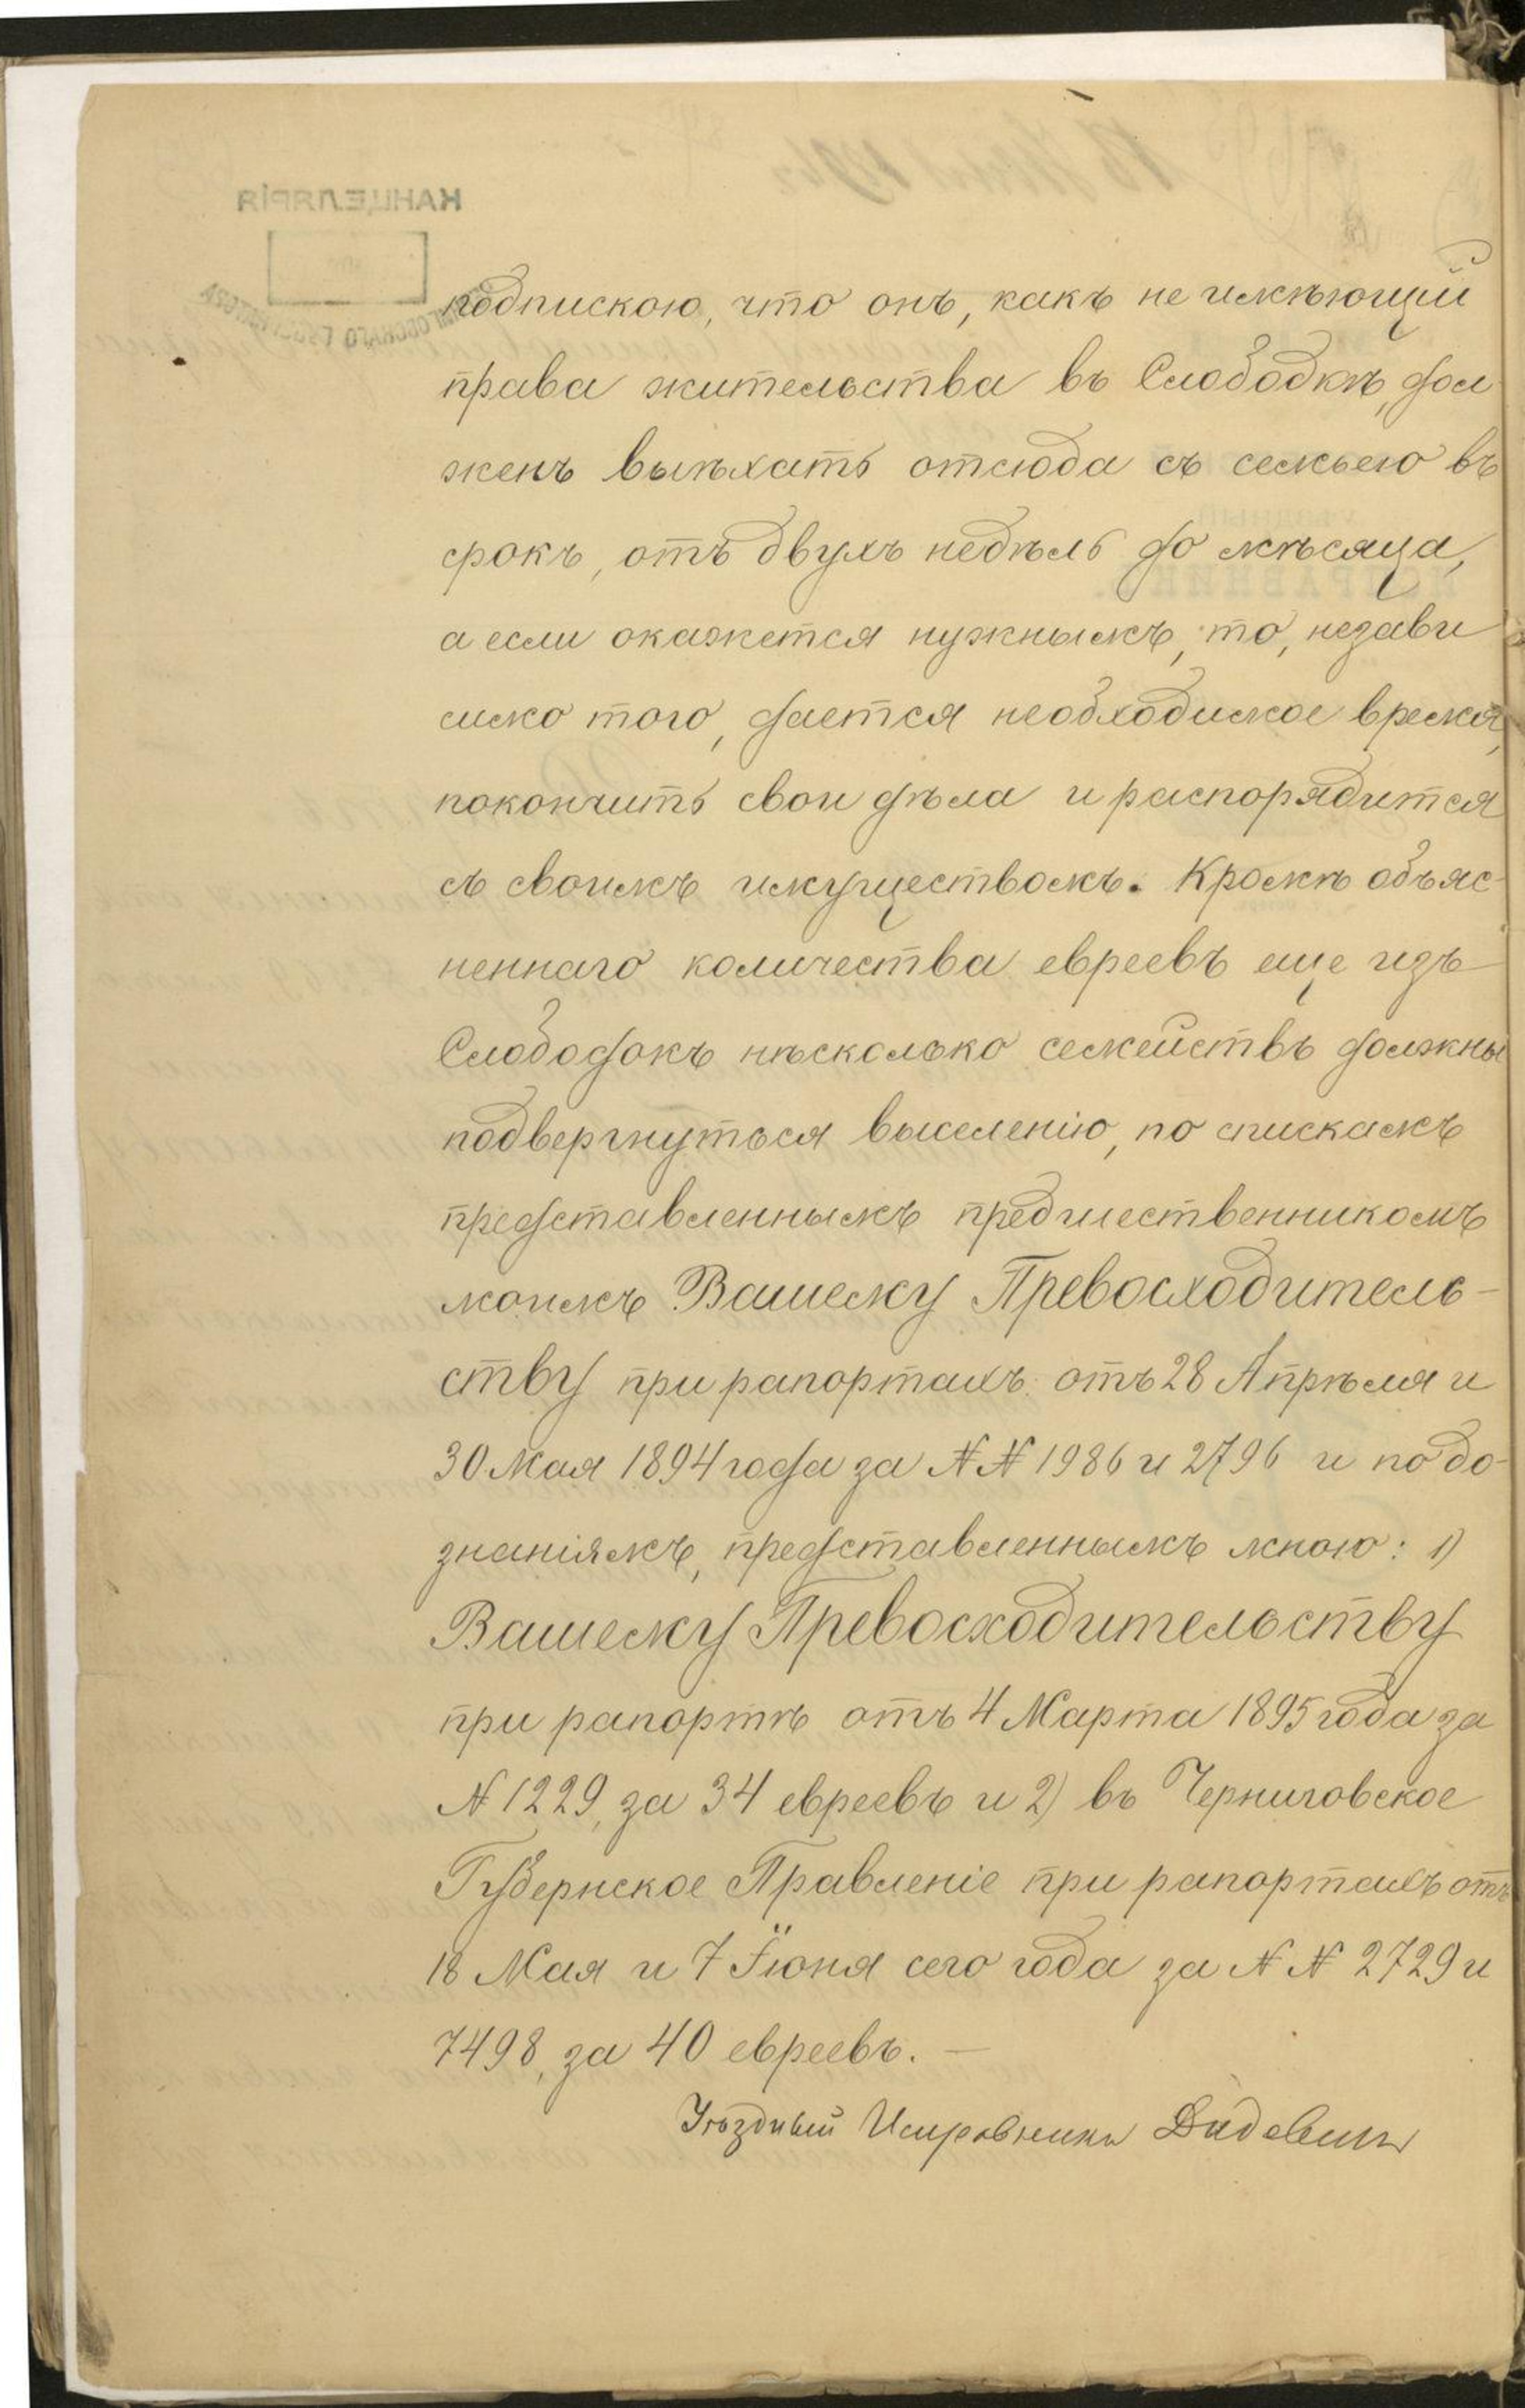 КАНЦЕЛЯРІЯ
подпискою, что онъ, какъ не имѣющій
права жительства въ Слободкѣ, дол
женъ выѣхать отсюда съ семьею въ
срокъ, отъ двухъ недѣль до мѣсяца,
а если окажется нужнымъ, то, незави
симо того, дается необходимое время,
покончить свои дѣла и распорядится
съ своимъ имуществомъ. Кромѣ объяс-
неннаго количества евреевъ еще изъ
Слободокъ нѣсколько семействъ должны
подвергнуться выселенію, по спискамъ
представленнымъ предшественникомъ
моимъ Вашему Превосходитель-
ству при рапортахъ отъ 28 Апрѣля и
30 Мая 1894 года за №№ 1986 и 2796 и по до-
знаніямъ, представленнымъ мною: 1)
Вашему Превосходительству
при рапортѣ отъ 4 Марта 1895 года за
№ 1229, за 34 евреевъ и 2) въ Черниговское
Губернское Правленіе при рапортахъ отъ
18 Мая и 7 Іюня сего года за №№ 2729 и
7498, за 40 евреевъ. —
Уѣздный Исправникъ